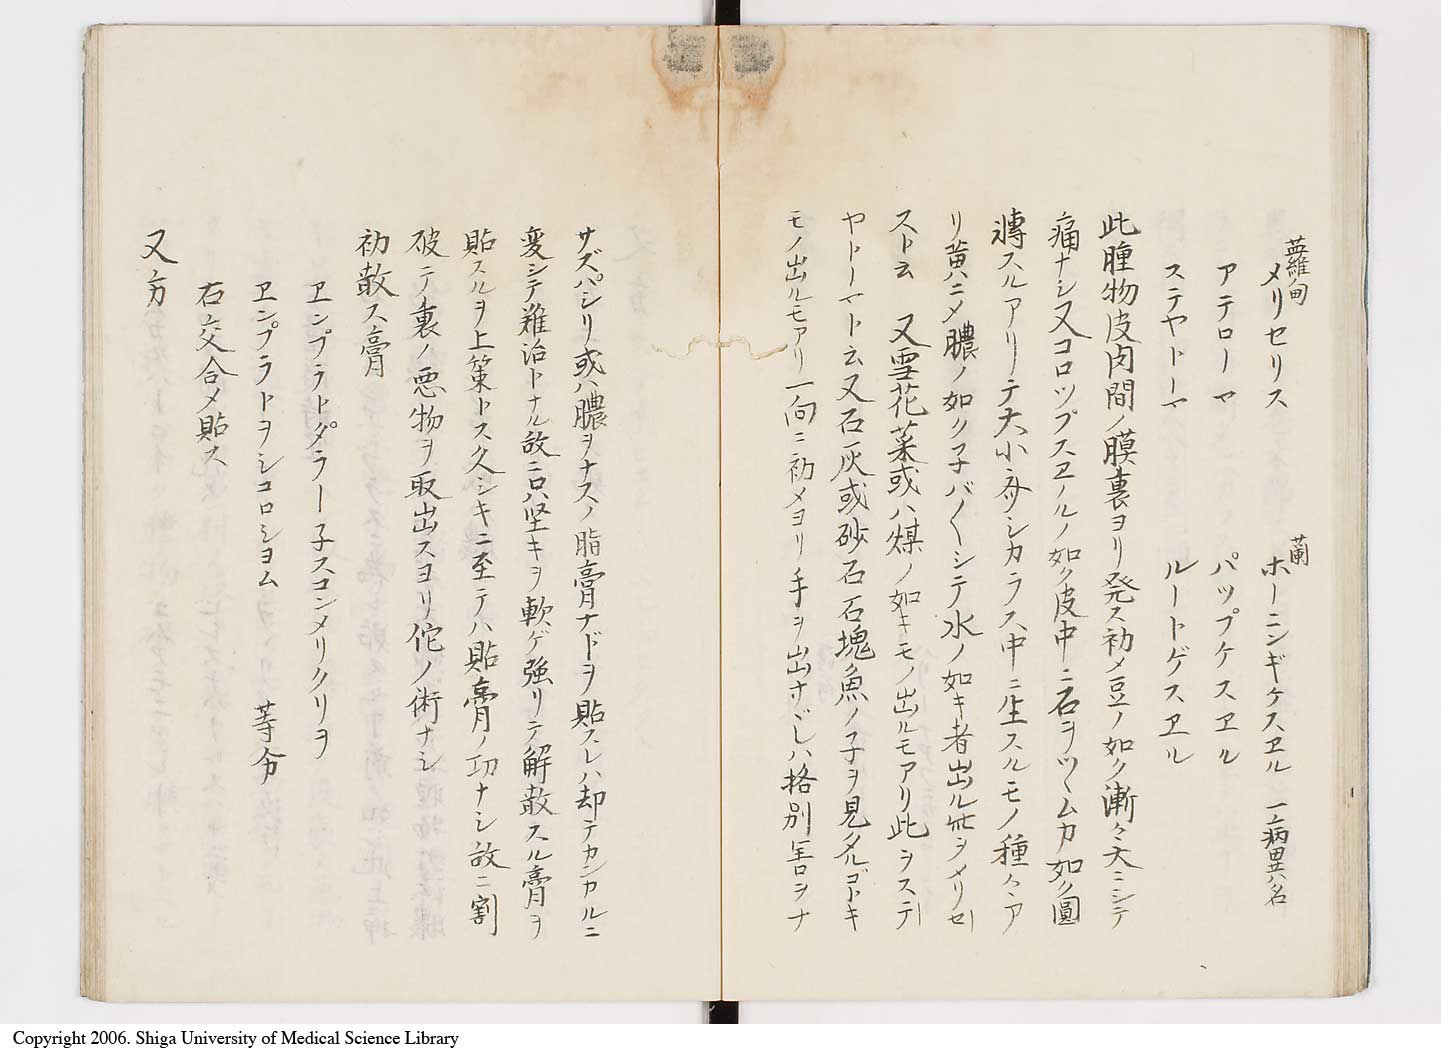 羅甸 メリセリス 蘭 ホーニンギケスヱル 一病異名
アテローマ パップケスヱル
ステヤトーマ ルートゲスヱル
此腫物皮肉間ノ膜裏ヨリ発ス初メ豆ノ如ク漸々大ニシテ
痛ナシ又コロップスヱルノ如ク皮中ニ石ヲツヽムカ如ク圓
轉スルアリテ大小ヒトシカラス中ニ生スルモノ種々ア
リ黄ハニメ膿ノ如クネバ〱シテ水ノ如キ者出ル此ヲメリセリ
スト云 又雪花菜或ハ煤ノ如キモノ出ルモアリ此ヲステ
ヤトーマト云又石灰或砂石石塊魚ノ子ヲ見タルゴトキ
モノ出ルモアリ一向ニ初メヨリ手ヲ出サヾレハ格別害ヲナ
サズパシリ或ハ膿ヲナスノ脂膏ナドヲ貼スレハ却テカンカルニ
変シテ難治トナル故ニ只堅キヲ軟ゲ強リテ解散スル膏ヲ
貼スルヲ上策トス久シキニ至テハ貼膏ノ功ナシ故ニ割
破テ裏ノ悪物ヲ取出スヨリ佗ノ術ナシ
初散ス膏
ヱンプラトダラー子スコンメリクリヲ
ヱンプラトヲシコロシヨム 等分
右交合メ貼ス
又方
Copyright 2006. Shiga University of Medical Science Library